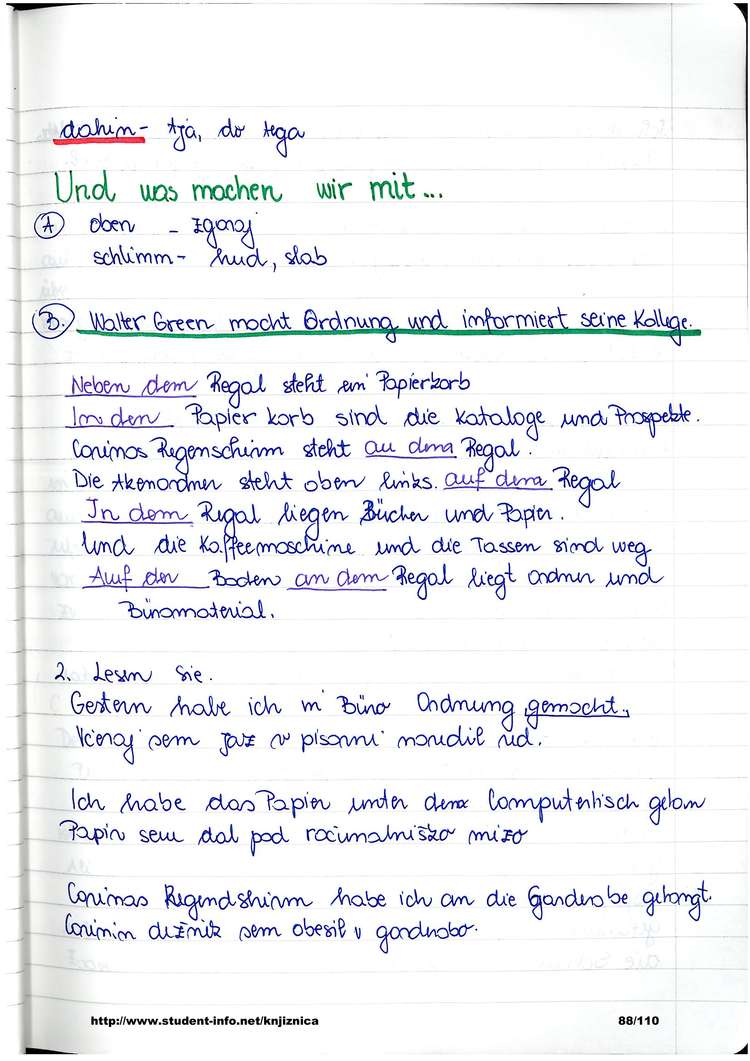 dahin - tja, do tega
Und was machen wir mit...
A oben - zgoraj
schlimm - hud, slab
B. Walter Green macht Ordnung und informiert seine Kollege.
Neben dem Regal steht ein Papierkorb
In den Papier korb sind die Kataloge und Prospekte.
Corinas Regenschirm steht an dem Regal.
Die Akenordner steht oben links. auf dem Regal
In dem Regal liegen Bücher und Papier.
Und die Kaffeemaschine und die Tassen sind weg
Auf der Boden an dem Regal liegt Ordner und
Büromaterial.
2. Lesen Sie.
Gestern habe ich in Büro Ordnung gemacht.
Včeraj sem jaz v pisarni naredil red.
Ich habe das Papier unter dem Computertisch
Papir sem dal pod računalniško mizo
Corinas Regendshirm habe ich an die Garderobe gehangt.
Corinin dežnik sem obesil v garderobo.
http://www.student-info.net/knjiznica 88/110